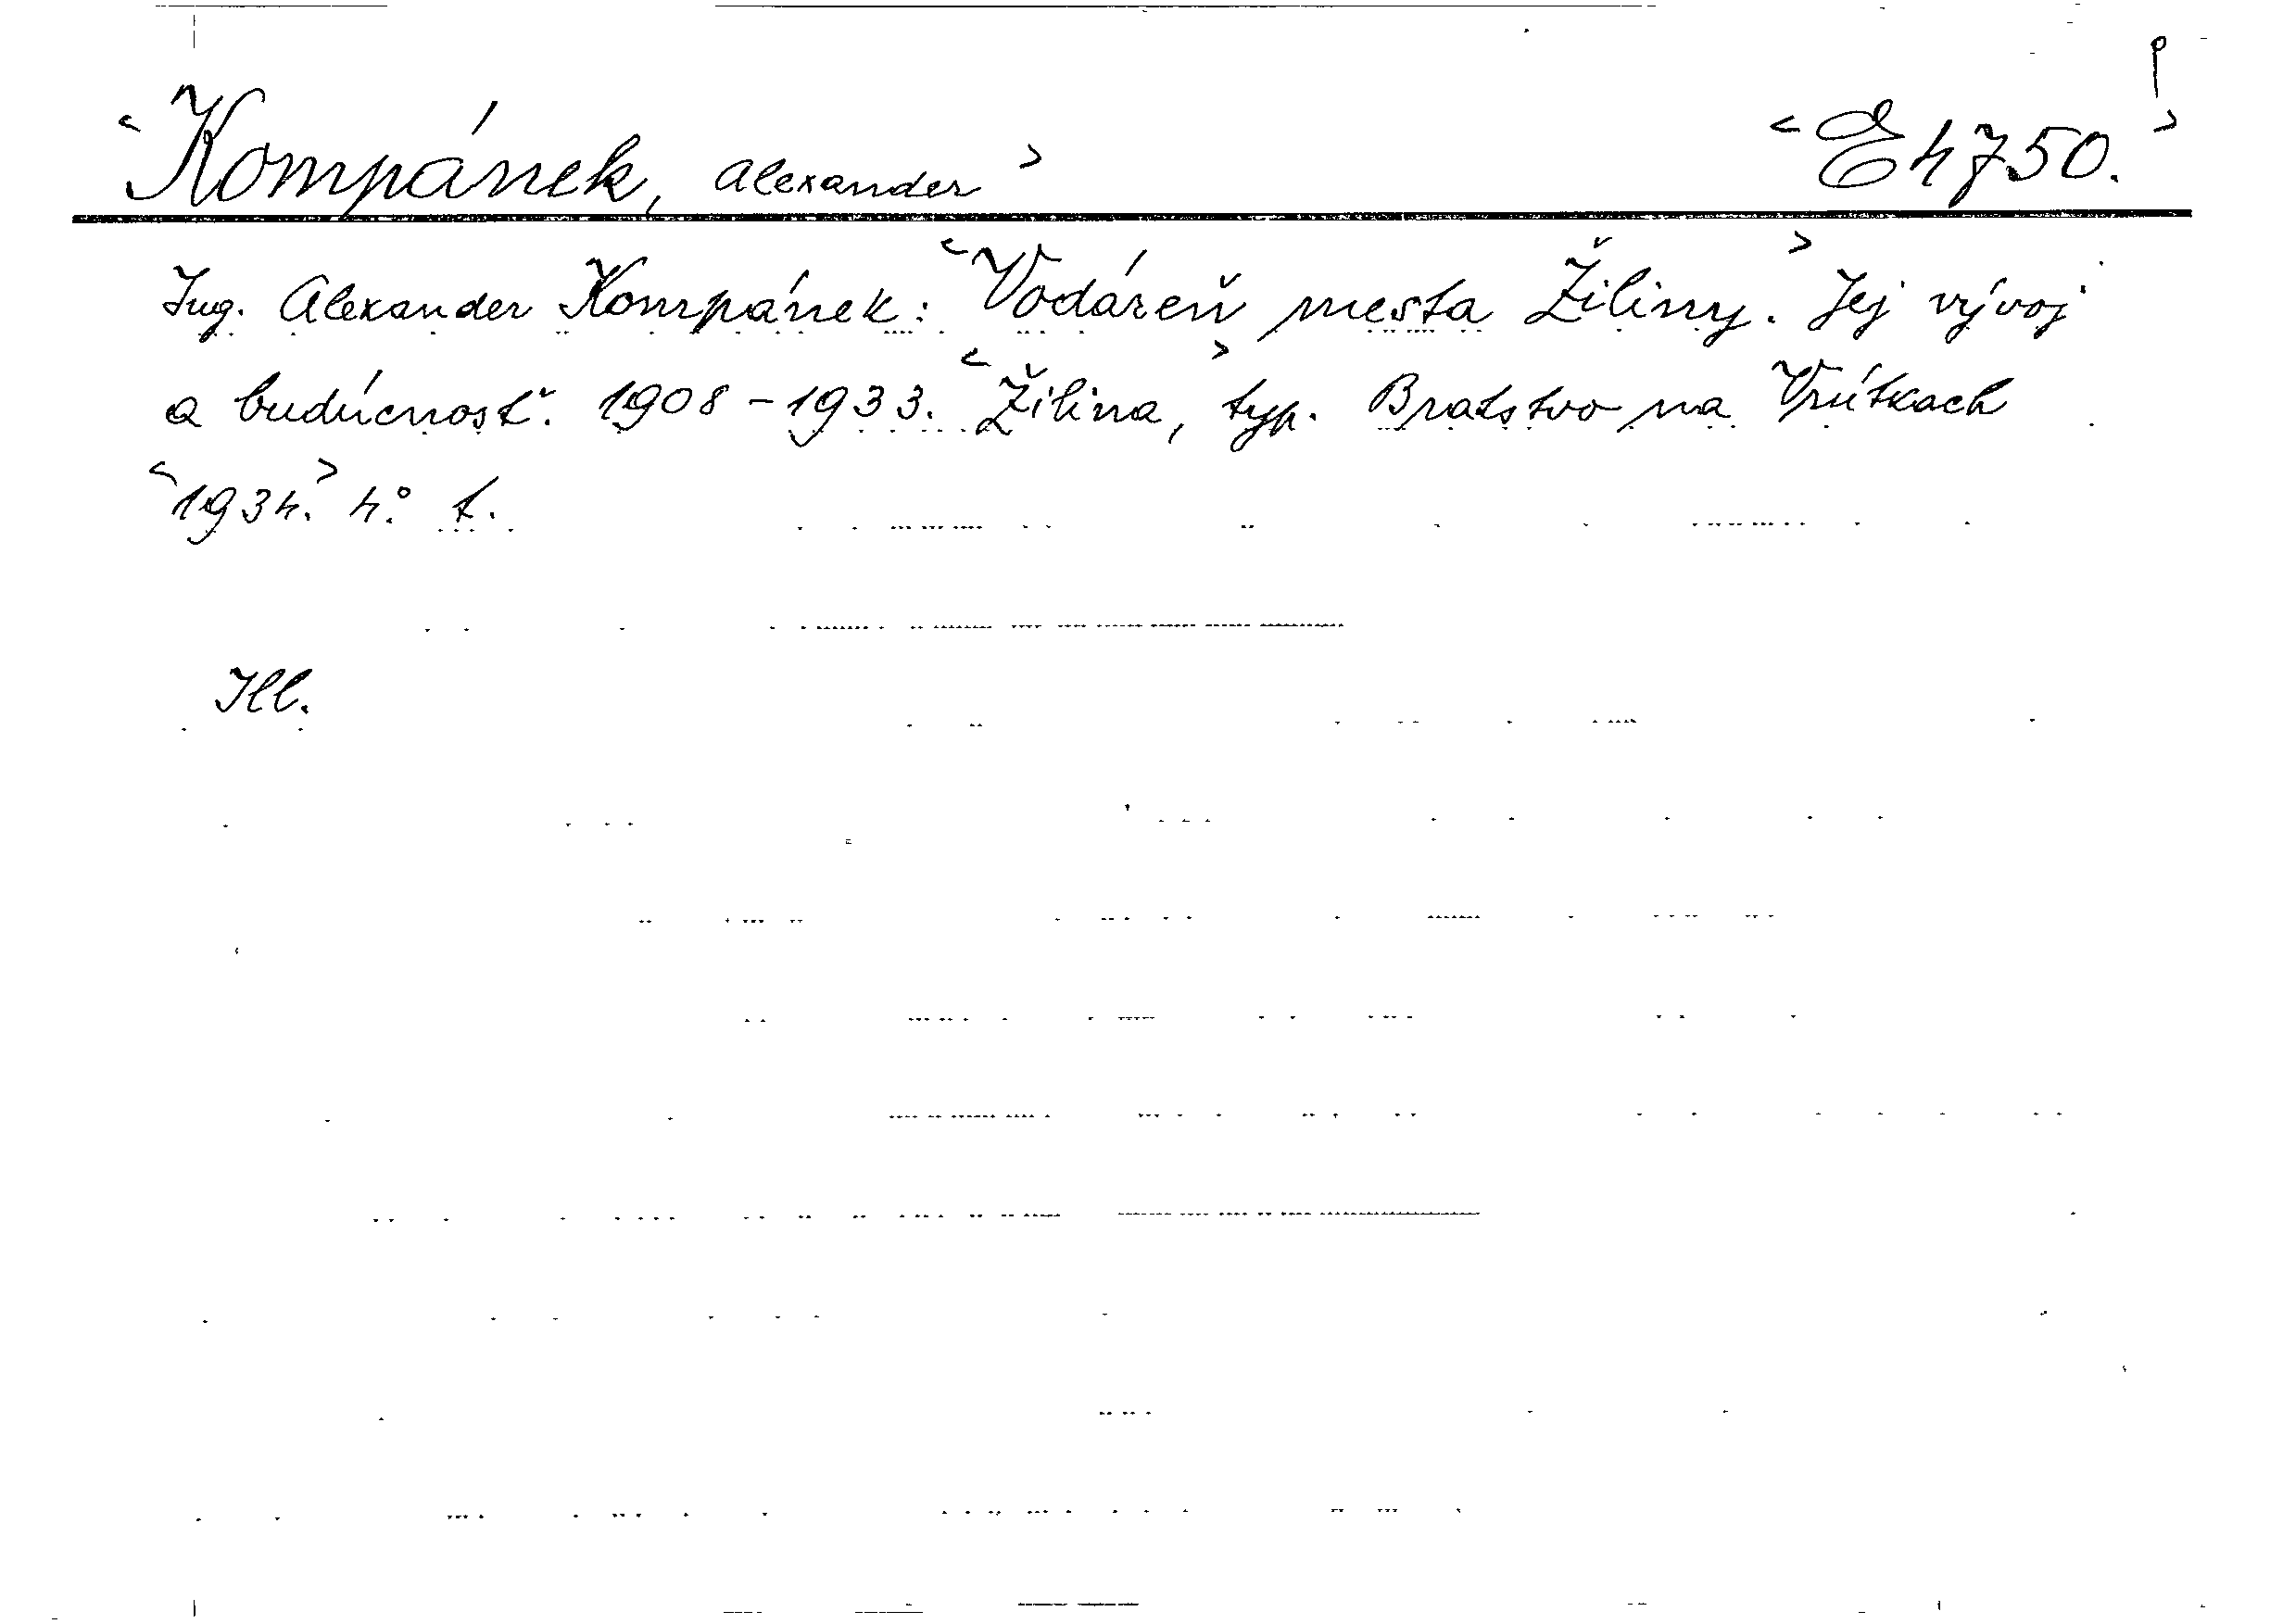 <Kompánek, Alexander> <E4750.>
Ing. Alexander Kompánek: <Vodáreň mesta Žiliny.> Jej vývoj
a budúcnosť. 1908-1933. <Žilina,> typ. Bratstvo na Vrútkach
<1934.> 4° t.
Ill.